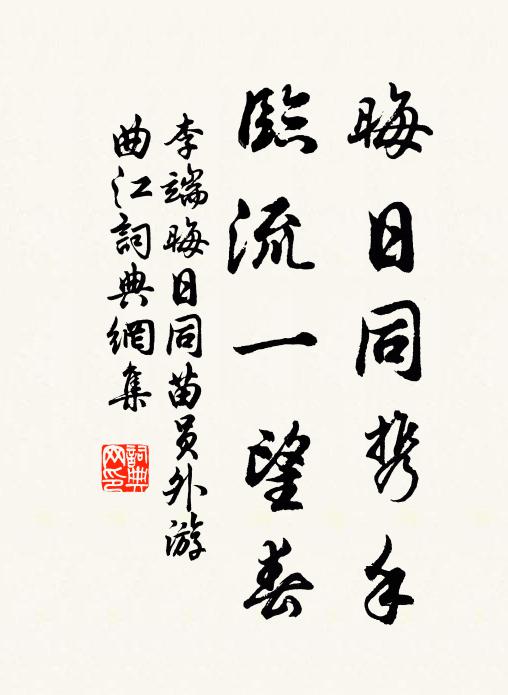 晦日同携手
臨流一望春
李端晦日同苗员外游
曲江詞典網集
詞典网印